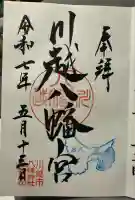 奉拝
川越八幡宮
令和七年五月十三日